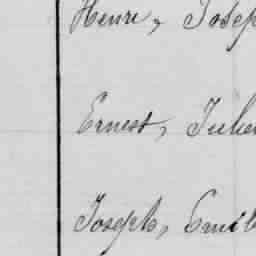 Henri, Josep
Ernest, Julie
Joseph, Emil